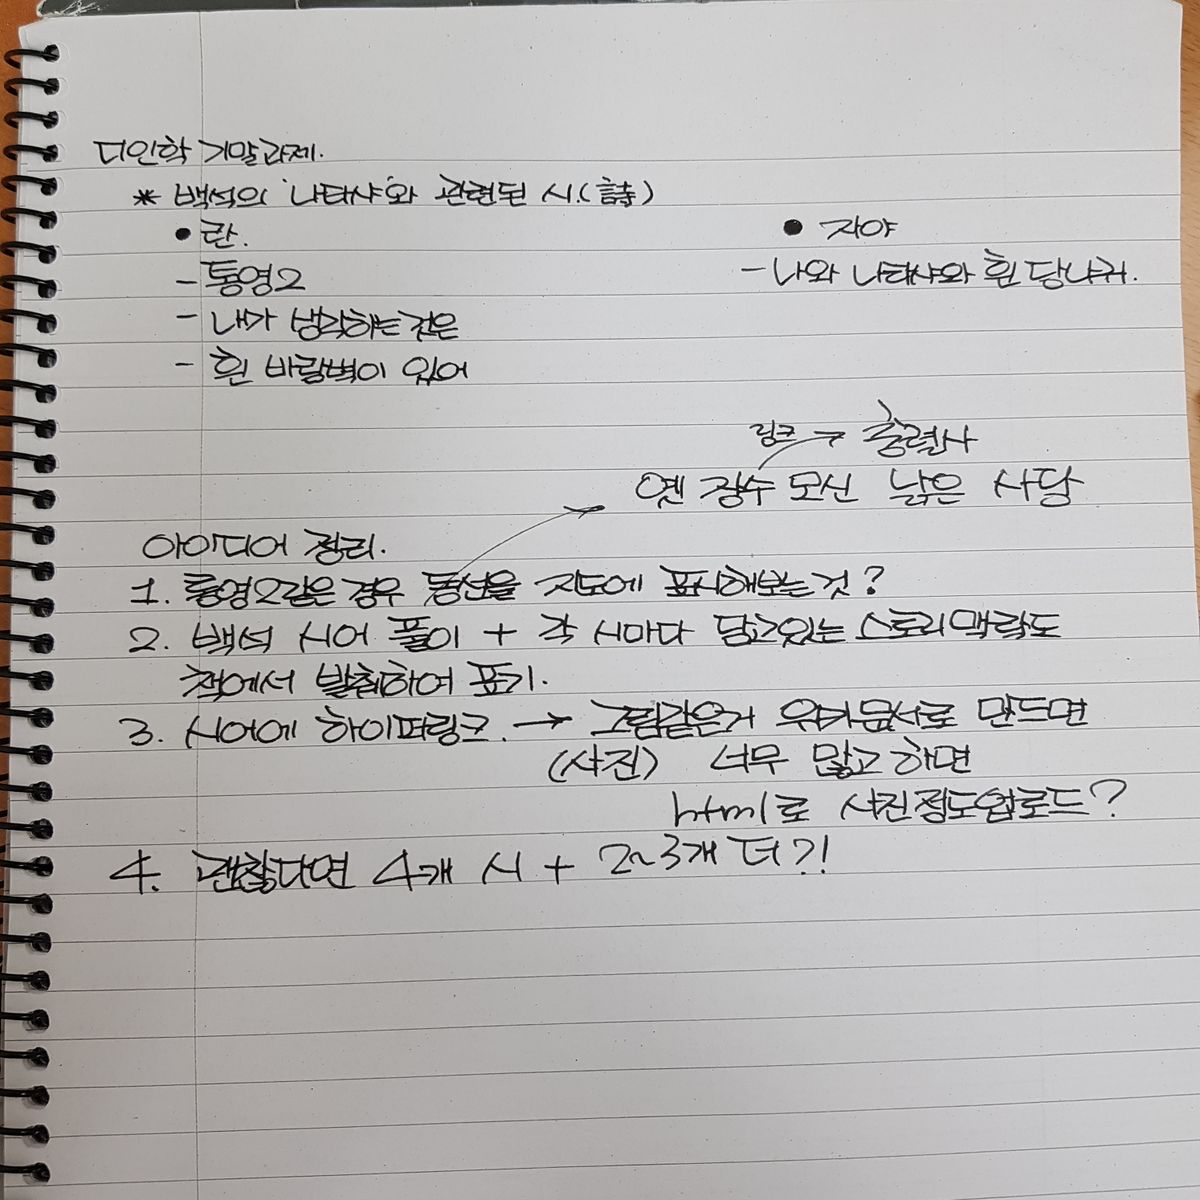 디인학 기말과제.
* 백석의 '나타샤'와 관련된 시.(詩)
● 란.
- 통영2
- 내가 생각하는 것은
- 흰 바람벽이 있어
● 자야
- 나와 나타샤와 흰 당나귀.
링크 → 충렬사
옛 장수 모신 낡은 사당
아이디어 정리.
1. 통영2같은 경우 동선을 지도에 표시해보는 것?
2. 백석 시어 풀이 + 각 시마다 담고있는 스토리 맥락도
책에서 발췌하여 표기.
3. 시어에 하이퍼링크. → 그림같은거 위키문서로 만드면
(사진) 너무 많고 하면
html로 사진정도 업로드?
4. 괜찮다면 4개 시 + 2~3개 더?!